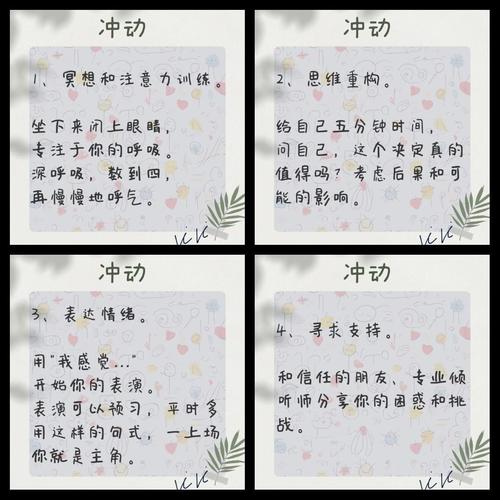 冲动
1、冥想和注意力训练。
坐下来闭上眼睛，
专注于你的呼吸。
深呼吸，数到四，
再慢慢地呼气。
KiKi
冲动
2、思维重构。
给自己五分钟时间，
问自己，这个决定真的
值得吗？考虑后果和可
能的影响。
KiKi
冲动
3、表达情绪。
用"我感觉..."
开始你的表演。
表演可以预习，平时多
用这样的句式，一上场
你就是主角。
KiKi
冲动
4、寻求支持。
和信任的朋友、专业倾
听师分享你的困惑和挑
战。
KiKi